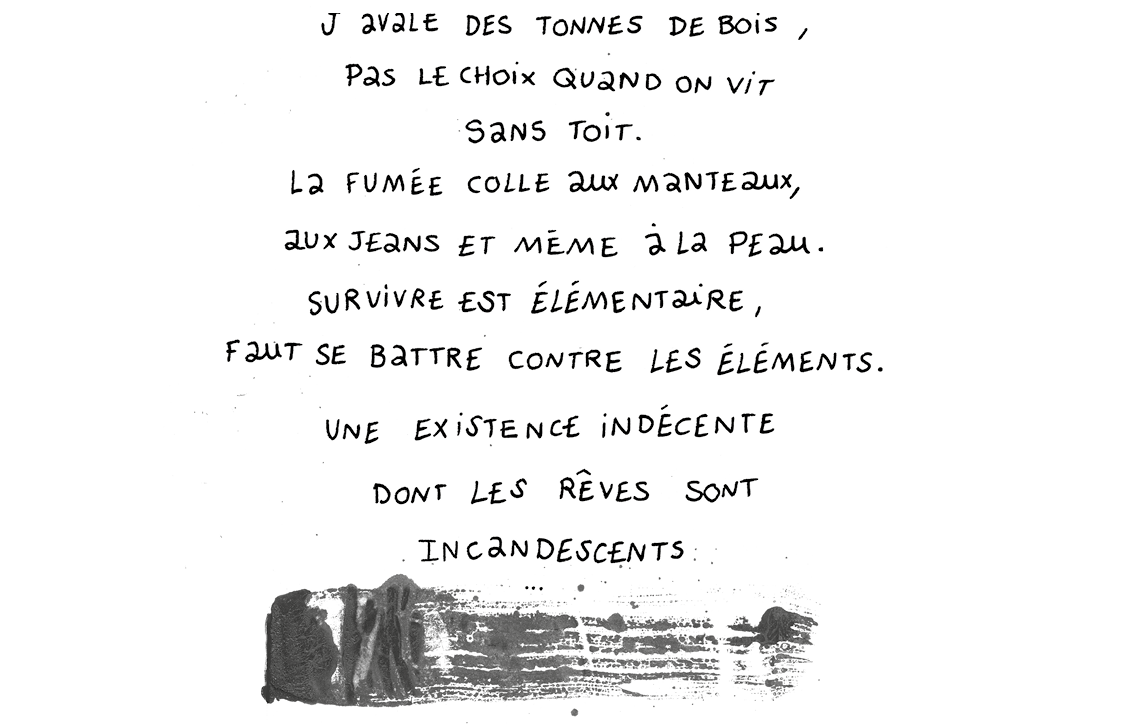 J avale DES TONNES DE BOiS ,
Pas LE CHOix QUaND ON ViT
SaNS TOiT.
La FUMÉE COLLE aux MaNTEaux,
aux JEaNS ET MÊME à La PEau.
SURViVRE EST ÉLÉMENTaiRE,
FauT SE BaTTRE CONTRE LES ÉLÉMENTS.
UNE EXiSTENCE iNDÉCENTE
DONT LES RÊVES SONT
INCaNDESCENTS
...